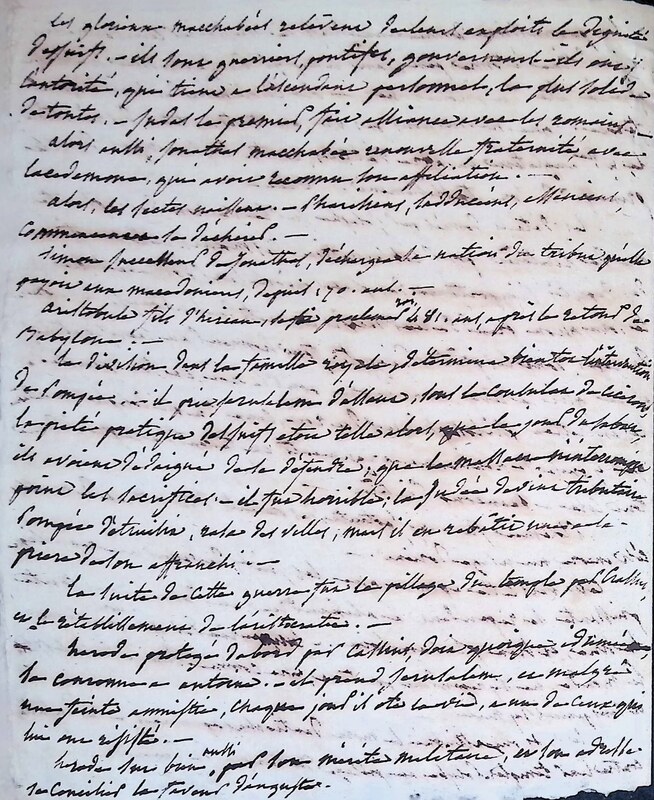 les glorieux macchabées relèvent par leurs exploits la dignité
des juifs. - ils sont guerriers, pontifes, gouverneurs - ils ont
l'autorité, qui tient a l'ascendant personnel, la plus solide
de toutes. - Judas le premier, fait alliance avec les romains. -
alors aussi, Jonathas macchabée renouvelle fraternité, avec
lacedemone, qui avait reconnu son affiliation. -
alors, les sectes naissent. - Pharisiens, sadducéens, esséniens,
commencent a se déchirer. -
Simon successeur de Jonathas, décharge la nation du tribut qu'elle
payoit aux macedoniens, depuis 170. ans. -
aristobule fils d'hircan, se fit proclamer roi, 481. ans, après le retour de
Babylone. -
la division dans la famille royale, détermine bientôt l'intervention
de Pompée. - il prit Jerusalem d'assaut, sous le consulat de Ciceron
la piété pratique des juifs etoit telle alors, que le jour du sabat,
ils avoient dédaigné de se défendre, que le massacre n'interrompit
point les sacrifices - il fut horrible, la Judée devint tributaire
Pompée détruisit, rasa des villes, mais il en rebâtit une a la
priere de son affranchi. -
la suite de cette guerre fut le pillage du temple par Crassus,
et le rétablissement de l'aristocratie. -
herode protégé d'abord par Cassius, dut quoique iduméen,
la couronne a antoine. - il prend Jerusalem, et malgré
une feinte amnistie, chaque jour il ote la vie, a un de ceux qui
lui ont résisté. -
herode sut bien aussi, par son mérite militaire, et son adresse
se concilier la faveur d'auguste. -